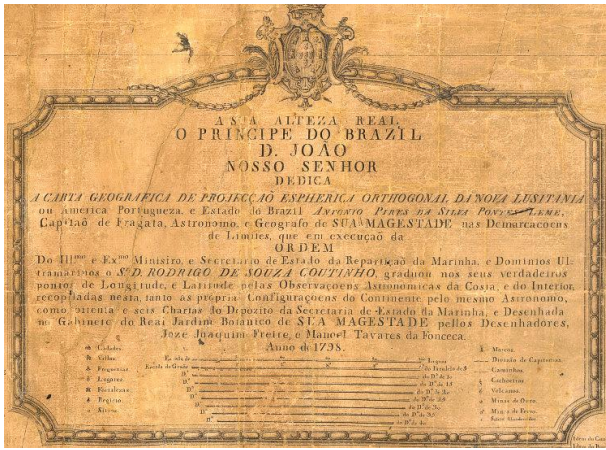 A SUA ALTEZA REAL
O PRINCIPE DO BRAZIL
D. JOÃO
NOSSO SENHOR
DEDICA
A CARTA GEOGRAFICA DE PROJECÇAÕ ESPHERICA ORTHOGONAL DA NOVA LUSITANIA
ou America Portugueza, e Estado do Brazil ANTONIO PIRES DA SILVA PONTES LEME,
Capitaõ de Fragata, Astronomo, e Geografo de SUA MAGESTADE nas Demarcacoens
de Limites, que em execuçaõ da
ORDEM
Do Illmo e Exmo Ministro, e Secretario de Estado da Repartiçaõ da Marinha, e Dominios Ul-
tramarinos o Sr D. RODRIGO DE SOUZA COUTINHO, graduou nos seus verdadeiros
pontos de Longitude, e Latitude pelas Observaçoens Astronomicas da Costa, e do Interior,
recopiladas nesta, tanto as propria Configuraçoens do Continente pelo mesmo Astronomo,
como oitenta e seis Chartas do Depozito da Secretaria de Estado da Marinha, e Desenhada
no Gabinete do Real Jardim Botanico de SUA MAGESTADE pellos Desenhadores,
Joze Joaquim Freire, e Manoel Tavares da Fonceca.
Anno de 1798.
Cidades
Villas
Freguezias
Lugares
Fortalezas
Registo
Sitios
Escala de
Legoas
Escala de Graõs
do Parallelo de
Do
do Do de
Divizaõ de Capitanias
Caminhos
Cachoeiras
Volcanos
Minas de Ouro
Minas de Ferro